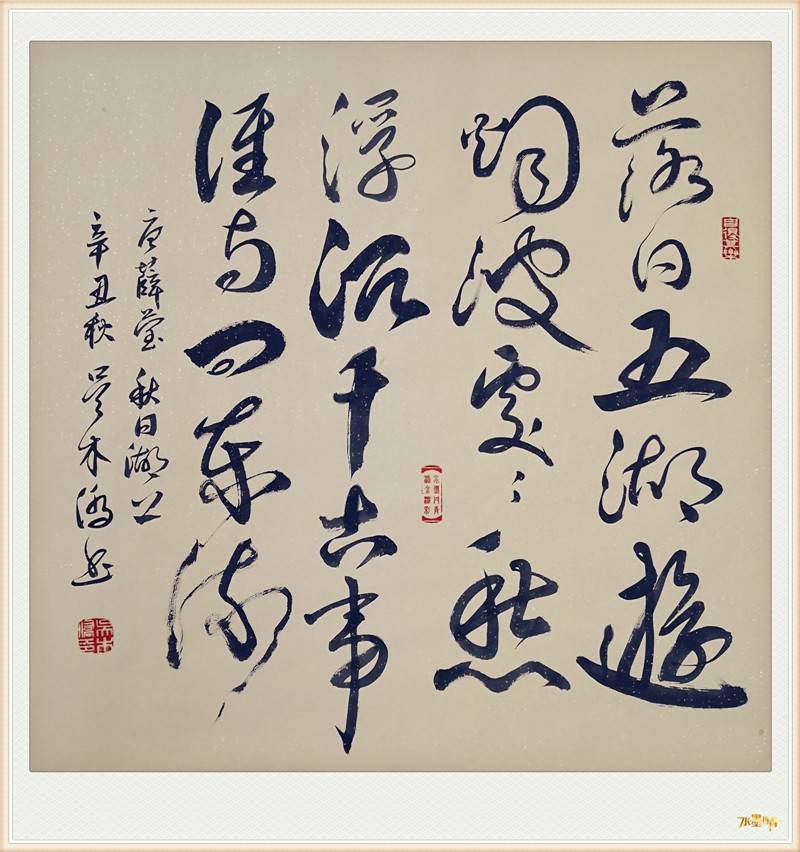 落日五湖遊
烟波處〻愁
浮沉千古事
誰与問東流
唐薛瑩秋日湖上
辛丑秋 吴木